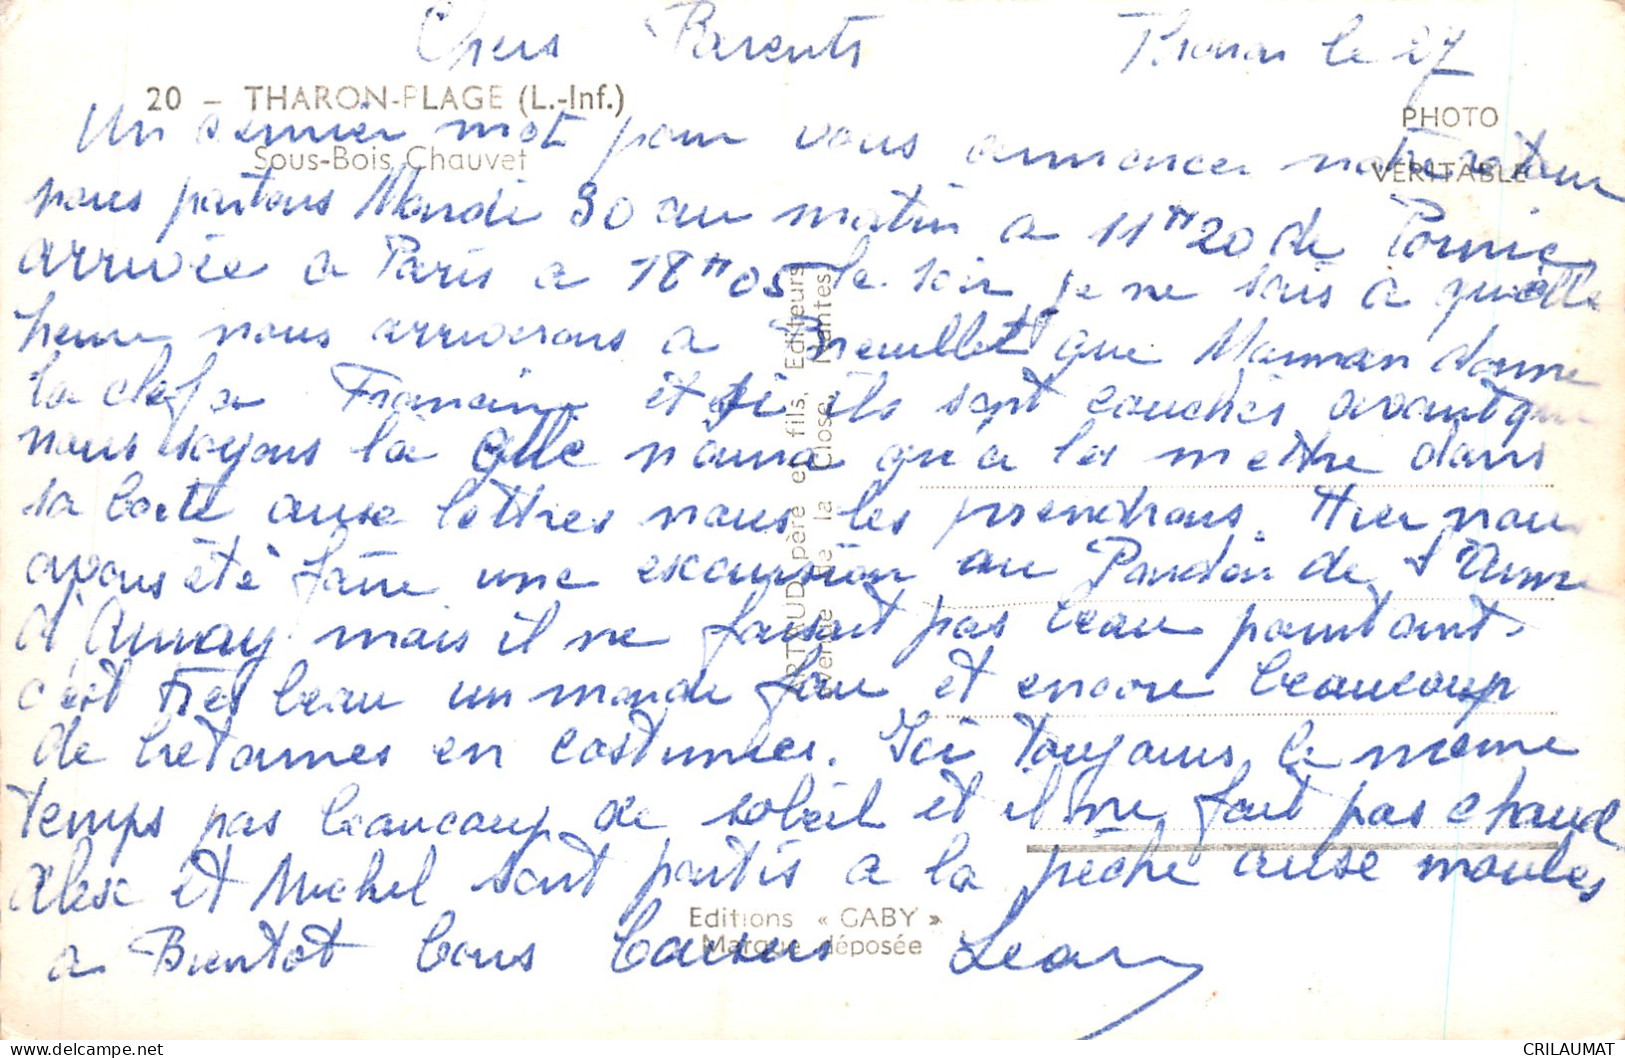 Chers Parents
Tharon le 27
20 - THARON-PLAGE (L.-Inf.)
Sous-Bois Chauvet
PHOTO
VERITABLE
Un dernier mot pour vous annoncer notre retour
nous partons Mardi 30 au matin a 11H20 de Pornic
arrivée a Paris a 18H05 le soir, je ne sais à quelle
heure nous arriverons a Breuillet que Maman donne
la clef a Francine et si ils sont couchés avant que
nous soyons là elle naura qu'a les mettre dans
sa boite aux lettres nous les prendrons. Hier nous
avons été faire une excursion au Pardon de St Anne
d'Auray mais il ne faisait pas beau pourtant
c'est très beau un monde fou et encore beaucoup
de bretonnes en costumes. Ici toujours le meme
temps pas beaucoup de soleil et il ne fait pas chaud
Alex et Michel sont partis a la pêche aux moules
a Bientot bons baisers Jean
ARTAUD père et fils, Editeurs
de la Close, Nantes
Editions « GABY »
Marque déposée
CRILAUMAT